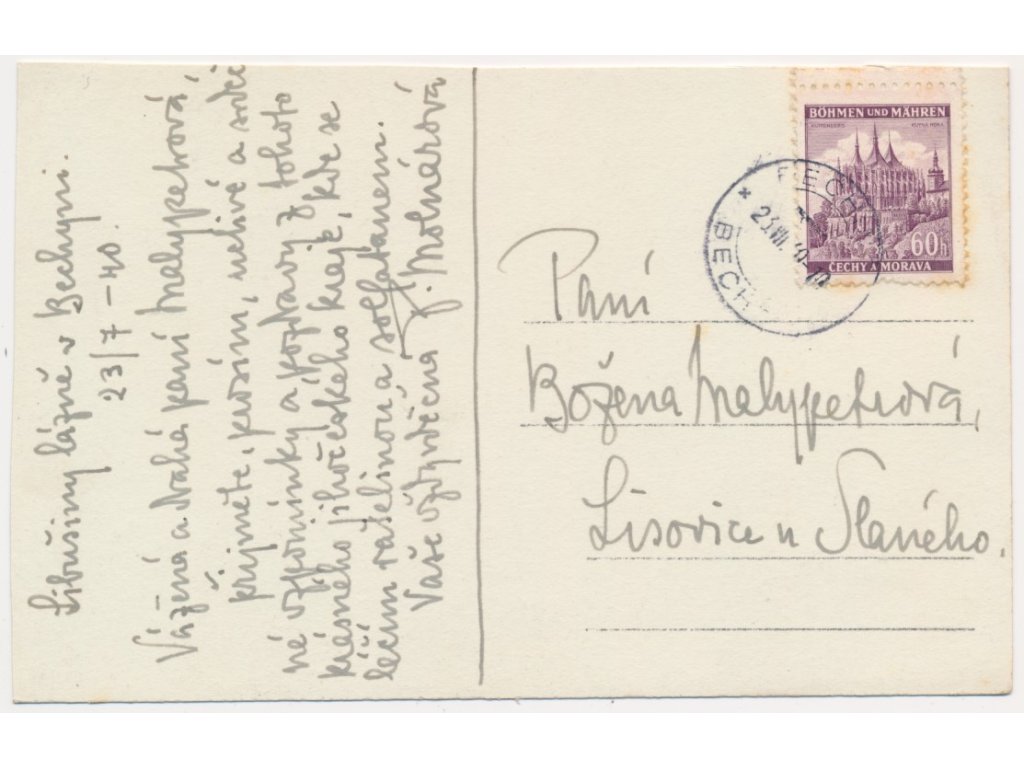 Libušiny lázně v Bechyni.
23/7-40.
Vážená a drahá paní Malypetrová,
přijměte, prosím, uctivé a srdeč
né vzpomínky a pozdravy z tohoto
krásného jihočeského kraje, kde se
léčím rašelinou a solfatanem.
Vaše vždy vděčná J. Molnárová
BÖHMEN UND MÄHREN
KUTTENBERG KUTNÁ HORA
60h
ČECHY A MORAVA
BECH
23.VII.40-10
BECH
Paní
Božena Malypetrová,
Lisovice u Slaného.